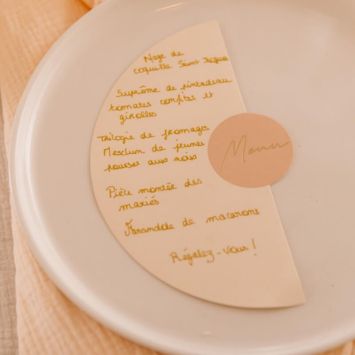 Noix de
coquille Saint Jacques
Suprême de pintadeau
tomates confites et
girolles
Trilogie de fromages
Mesclun de jeunes
pousses aux noix
Pièce montée des
mariés
Farandole de macarons
Régalez-vous !
Menu